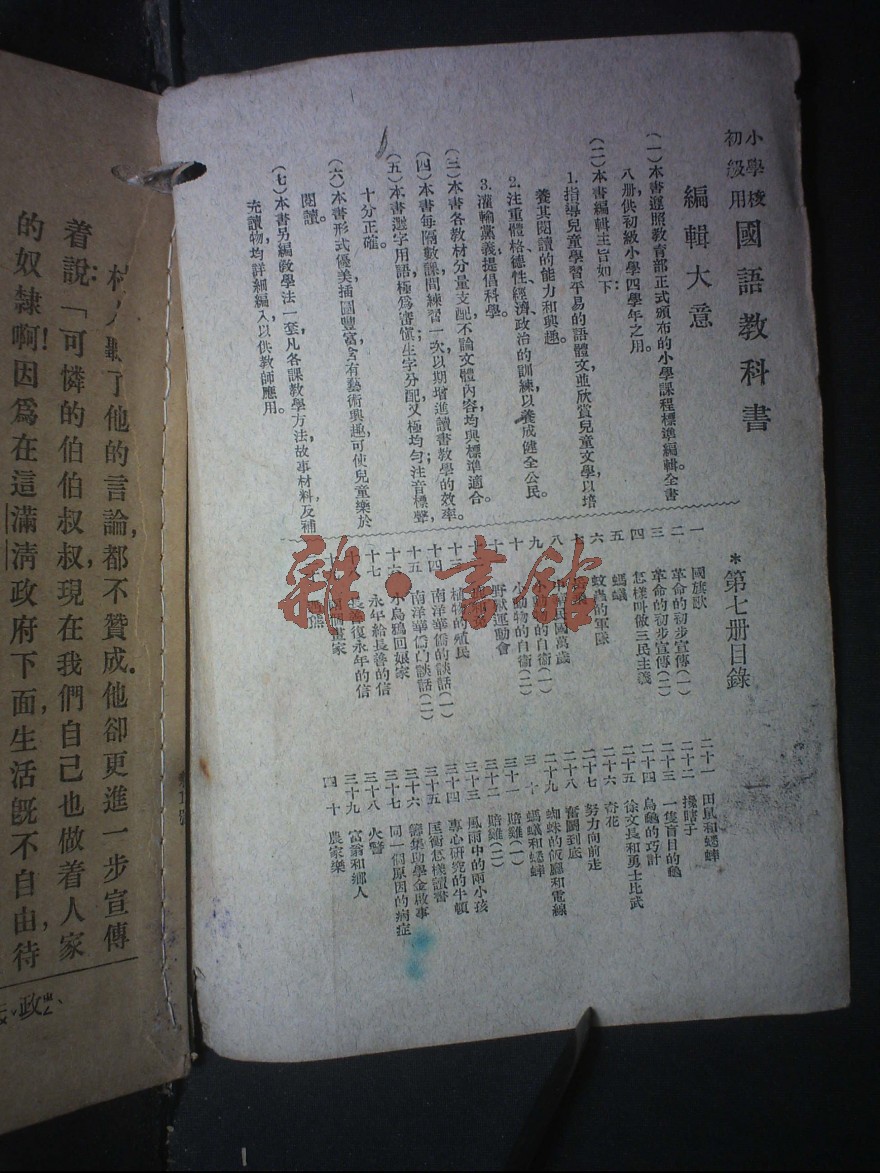 小學校
初級用
國語教科書
編輯大意
(一)本書遵照教育部正式頒布的小學課程標準編輯。全書
八册,供初級小學四學年之用。
(二)本書編輯主旨如下:
1.指導兒童學習平易的語體文,並欣賞兒童文學,以培
養其閱讀的能力和興趣。
2.注重體格、德性、經濟、政治的訓練,以養成健全公民。
3.灌輸黨義,提倡科學。
(三)本書各教材分量支配,不論文體內容,均與標準適合。
(四)本書每隔數課間練習一次,以期增進讀書教學的效率。
(五)本書選字用語,極爲審愼;生字分配,又極均勻;注音標聲,
十分正確。
(六)本書形式優美,插圖豐富,含有藝術興趣,可使兒童樂於
閱讀。
(七)本書另編敎學法一套,凡各課教學方法,故事材料,及補
充讀物,均詳細編入,以供教師應用。
*第七册目錄
一 國旗歌
二 革命的初步宣傳(一)
三 革命的初步宣傳(二)
四 怎樣叫做三民主義
五 螞蟻
六 蚊蟲的軍隊
七
八 中華民國萬歲
九 小動物的自衞(一)
十 小動物的自衞(二)
十一 野獸運動會
十二
十三 植物的殖民
十四 南洋華僑的談話(一)
十五 南洋華僑的談話(二)
十六 小烏鴉回娘家
十七 永年給長善的信
十八 長善復永年的信
畫家
熊
二十一 田鼠和蟋蟀
二十二 擾瞎子
二十三 一隻盲目的龜
二十四 烏龜的巧計
二十五 徐文長和勇士比武
二十六 奇花
二十七 努力向前走
二十八 奮鬭到底
二十九 蜘蛛的飯廳和電線
三十 螞蟻和蟋蟀
三十一 賠雞(一)
三十二 賠雞(二)
三十三 風雨中的兩小孩
三十四 專心研究的牛頓
三十五 匡衡怎樣讀書
三十六 籌集助學金啟事
三十七 同一個原因的病症
三十八 火警
三十九 富翁和鄉人
四十 農家樂
了他的言論,都不贊成。他卻更進一步宣傳
着說:「可憐的伯伯叔叔,現在我們自己也做着人家
的奴隸啊!因爲在這滿淸政府下面,生活旣不自由,待
政
雜·書館